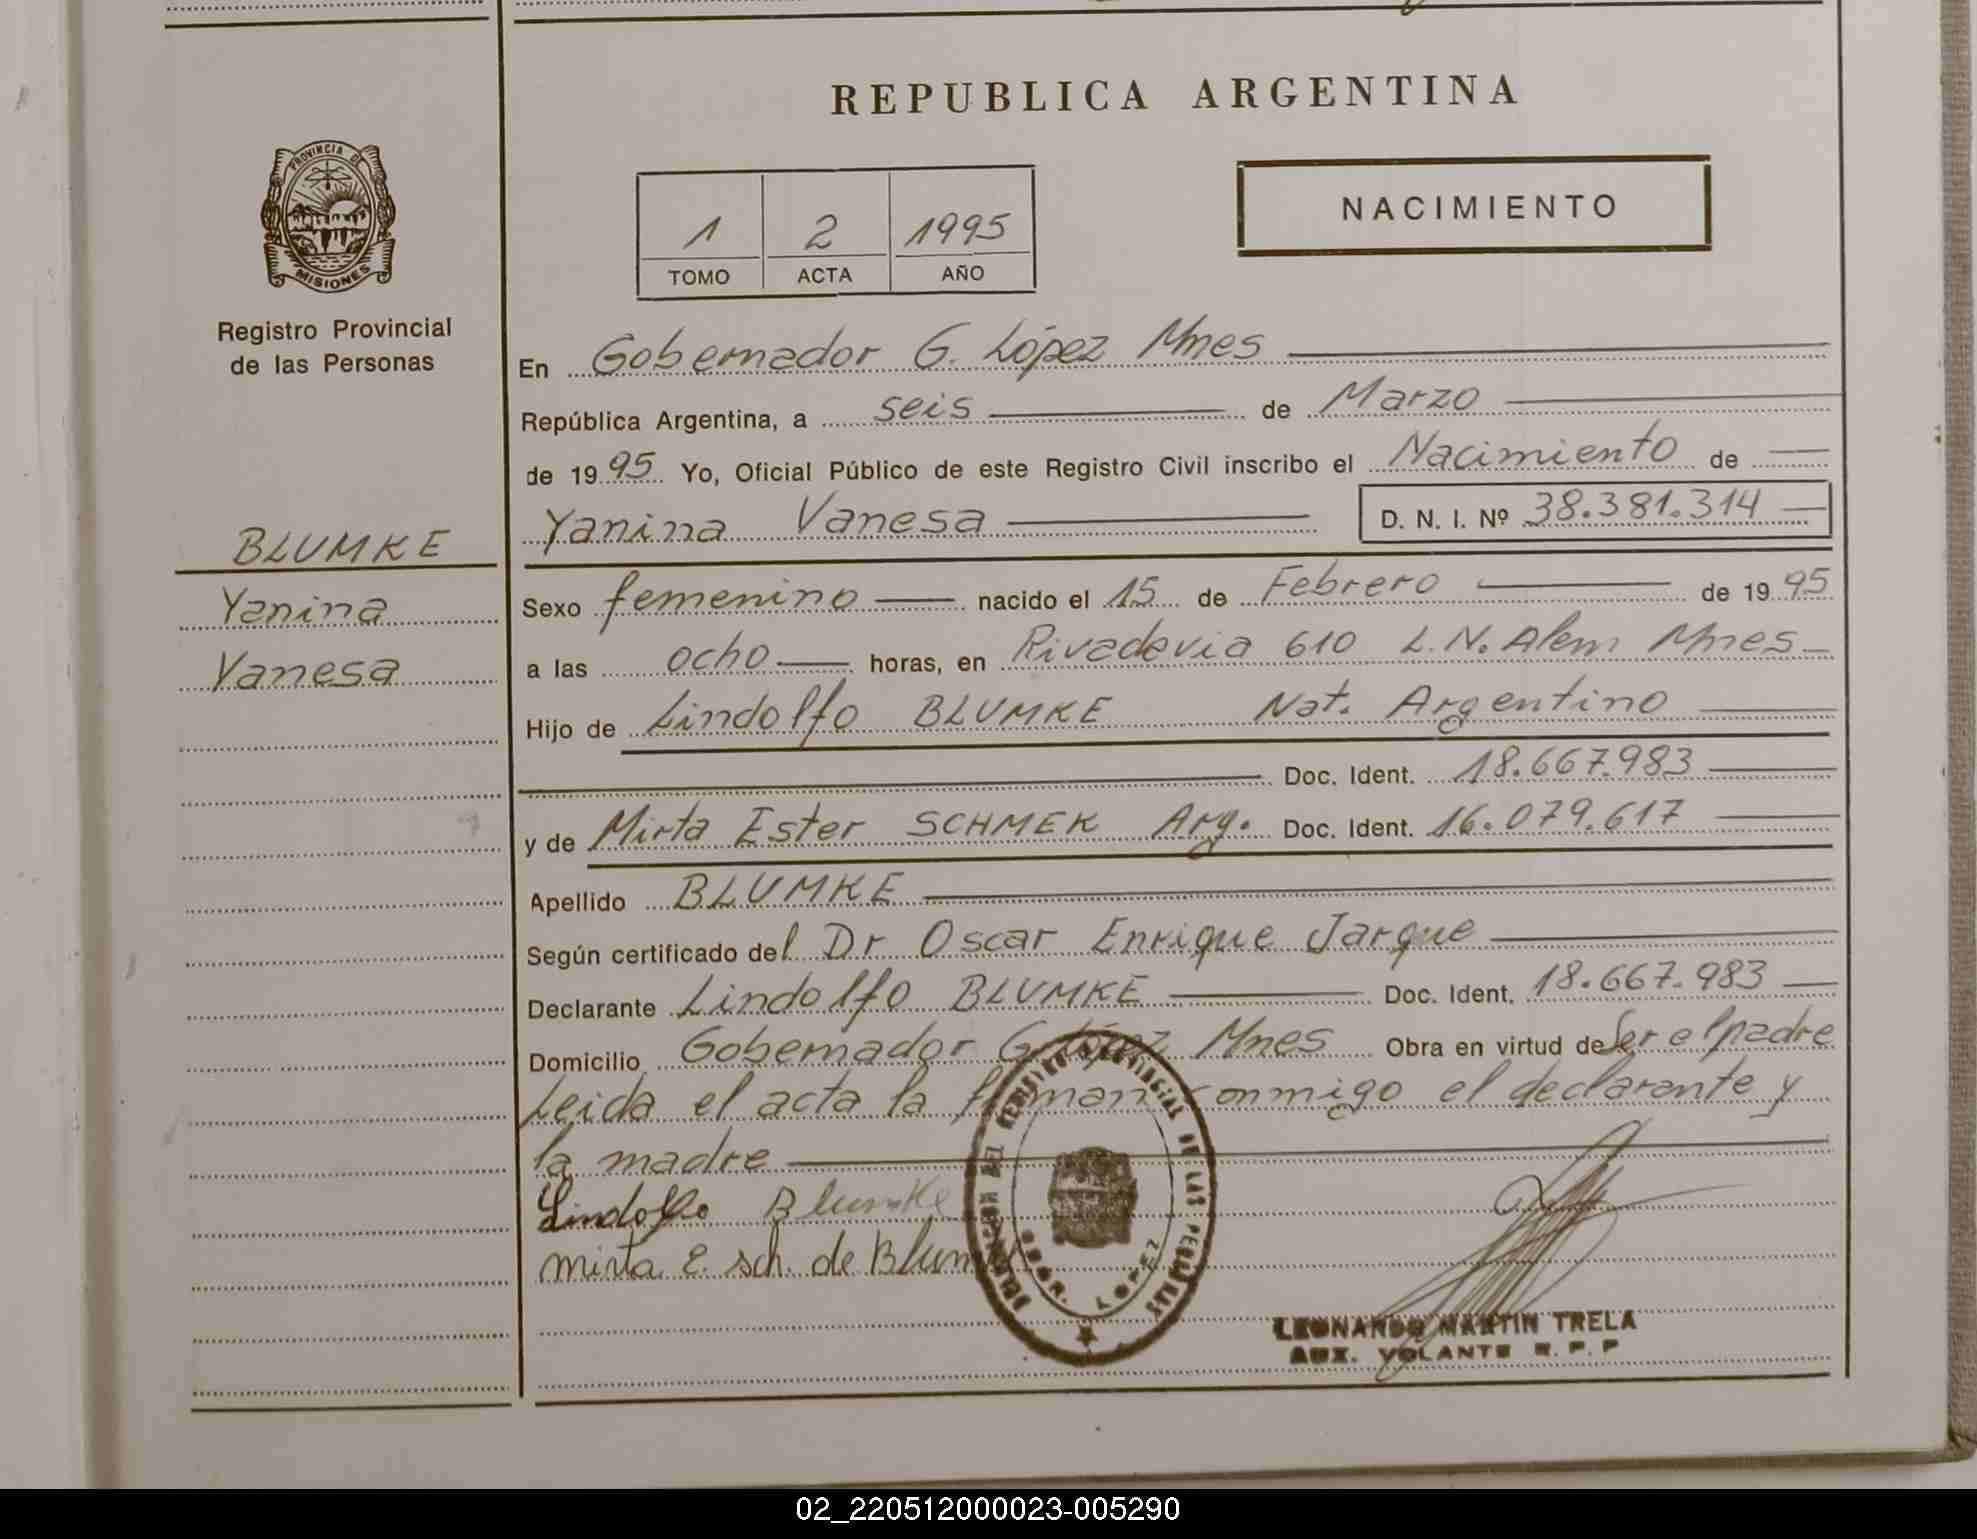 REPUBLICA ARGENTINA
PROVINCIA DE
MISIONES
Registro Provincial
de las Personas
NACIMIENTO
1 2 1995
TOMO ACTA AÑO
En Gobernador G. López Mnes
República Argentina, a seis de Marzo
de 1995 Yo, Oficial Público de este Registro Civil inscribo el Nacimiento de
Yanina Vanesa D. N. I. Nº 38.381.314
BLUMKE
Yanina
Vanesa
Sexo femenino nacido el 15 de Febrero de 1995
a las ocho horas, en Rivadavia 610 L.N. Alem Mnes
Hijo de Lindolfo BLUMKE Nat. Argentino
Doc. Ident. 18.667.983
y de Mirta Ester SCHMEK Arg. Doc. Ident. 16.079.617
Apellido BLUMKE
Según certificado del Dr Oscar Enrique Jarque
Declarante Lindolfo BLUMKE Doc. Ident. 18.667.983
Domicilio Gobernador G. López Mnes Obra en virtud de Ser el padre
Leida el acta la firman conmigo el declarante y
la madre
Lindolfo Blumke
mirta E. sch. de Blum
DEL REGISTRO PROVINCIAL DE LAS PERSONAS
GDOR. LOPEZ
LEONARDO MARTIN TRELA
AUX. VOLANTE R. P. P
02_220512000023-005290